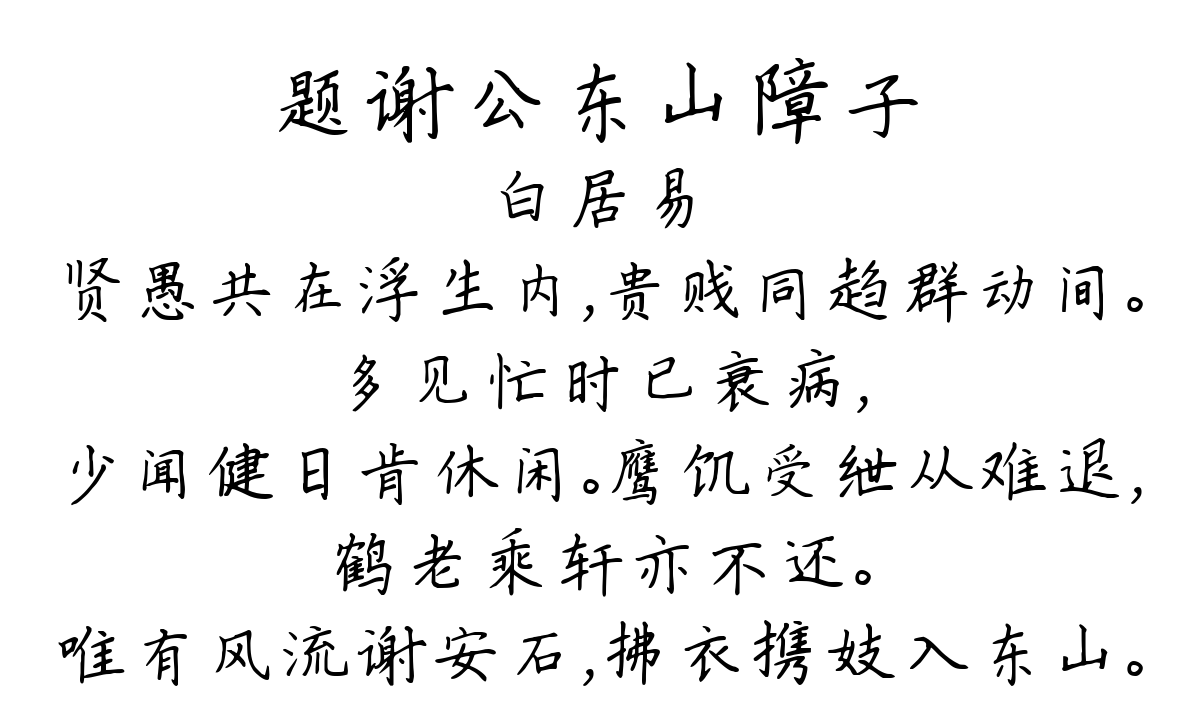 题谢公东山障子
白居易
贤愚共在浮生内,贵贱同趋群动间。
多见忙时已衰病,
少闻健日肯休闲。鹰饥受绁从难退,
鹤老乘轩亦不还。
唯有风流谢安石,拂衣携妓入东山。